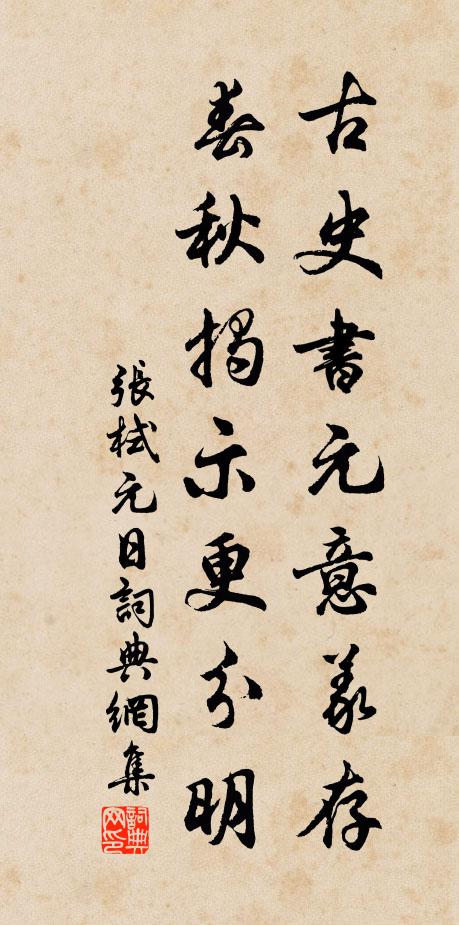 古史書元意義存
春秋揭示更分明
張栻元日詞典網集
詞典網印